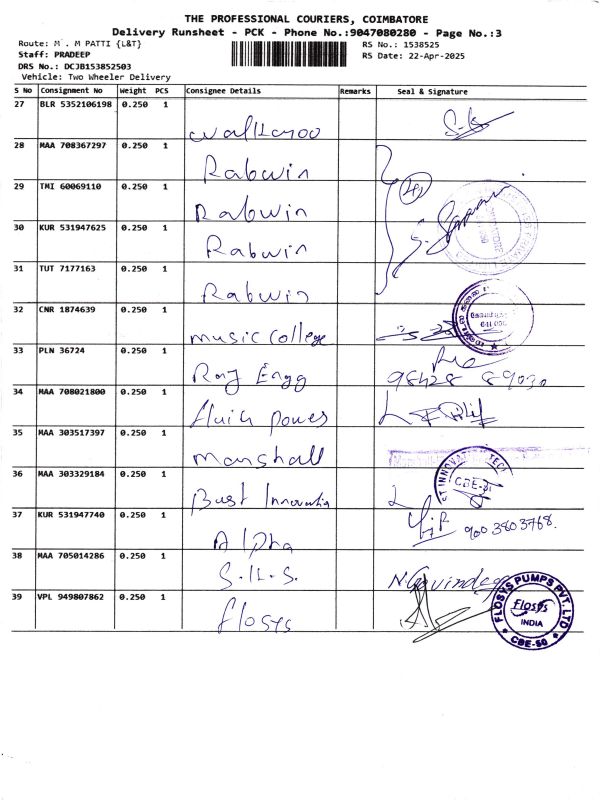 THE PROFESSIONAL COURIERS, COIMBATORE
Delivery Runsheet - PCK - Phone No.:9047080280 - Page No.:3
Route: M . M PATTI {L&T}
RS No.: 1538525
Staff: PRADEEP
RS Date: 22-Apr-2025
DRS No.: DCJB153852503
Vehicle: Two Wheeler Delivery
S No Consignment No Weight PCS Consignee Details Remarks Seal & Signature
27 BLR 5352106198 0.250 1
wallkaroo
28 MAA 708367297 0.250 1
Rabwin
29 TMI 60069110 0.250 1
Rabwin
30 KUR 531947625 0.250 1
Rabwin
31 TUT 7177163 0.250 1
Rabwin
32 CNR 1874639 0.250 1
music college
33 PLN 36724 0.250 1
Raj Engg 98428 89030
34 MAA 708021800 0.250 1
fluid power
35 MAA 303517397 0.250 1
Marshall
36 MAA 303329184 0.250 1
Bust Innovatia
37 KUR 531947740 0.250 1
Alpha 900 3803768.
38 MAA 705014286 0.250 1
S.K.S.
39 VPL 949807862 0.250 1
flosys
FLOSYS PUMPS PVT. LTD
Flosys
INDIA
CBE-50